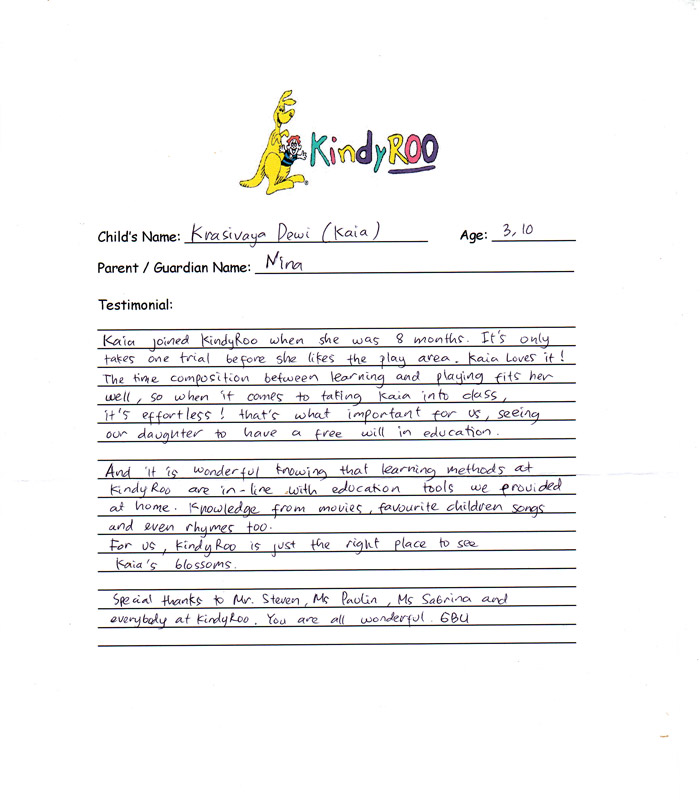 KindyROO
Child's Name: Krasivaya Dewi (Kaia) Age: 3,10
Parent / Guardian Name: Nina
Testimonial:
Kaia joined KindyRoo when she was 8 months. It's only
takes one trial before she likes the play area. Kaia Loves it!
The time composition between learning and playing fits her
well, so when it comes to taking Kaia into class,
it's effortless! that's what important for us, seeing
our daughter to have a free will in education.
And it is wonderful knowing that learning methods at
KindyRoo are in-line with education tools we provided
at home. Knowledge from movies, favourite children songs
and even rhymes too.
For us, KindyRoo is just the right place to see
Kaia's blossoms.
Special thanks to Mr. Steven, Ms Paulin, Ms Sabrina and
everybody at KindyRoo. You are all wonderful. GBU